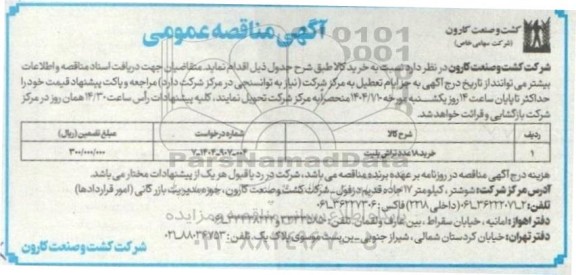 آگهی مناقصه عمومی
کشت و صنعت کارون
(شرکت سهامی خاص)
شرکت کشت و صنعت کارون در نظر دارد نسبت به خرید کالا طبق شرح جدول ذیل اقدام نماید. متقاضیان جهت دریافت اسناد مناقصه و اطلاعات
بیشتر می توانند از تاریخ درج آگهی به جز ایام تعطیل به مرکز شرکت (نیاز به توانسنجی در مرکز شرکت دارد) مراجعه و پاکت پیشنهاد قیمت خود را
حداکثر تا پایان ساعت ۱۴ روز یکشنبه مورخه ۱۴۰۴/۷/۱۰ منحصراً به مرکز شرکت تحویل نمایند. کلیه پیشنهادات رأس ساعت ۱۴/۳۰ همان روز در مرکز
شرکت بازگشایی و قرائت خواهد شد.
ردیف شرح کالا شماره درخواست مبلغ تضمین (ریال)
۱ خرید ۱۸ عدد تراش پلیت ۷-۱۴۰۴-۹۰۷-۰۰۴ ۳۰۰/۰۰۰/۰۰۰
هزینه درج آگهی مناقصه در روزنامه بر عهده برنده مناقصه می باشد، شرکت در رد یا قبول هر یک از پیشنهادات مختار می باشد.
آدرس مرکز شرکت: شوشتر، کیلومتر ۱۷ جاده قدیم دزفول - شرکت کشت و صنعت کارون، حوزه مدیریت بازرگانی (امور قراردادها)
تلفن: ۲-۰۶۱۳۶۲۲۲۰۷۱ (داخلی ۲۲۱۸) فاکس: ۰۶۱-۳۶۲۲۷۳۰۶
دفتر اهواز: امانیه، خیابان سقراط، بین عارف و لقمان، تلفن:
دفتر تهران: خیابان کردستان شمالی، شیراز جنوبی - بن بست موسوی پلاک یک. تلفن: ۰۲۱-۸۸۰۳۶۷۵۳
شرکت کشت و صنعت کارون
ParsNamadData